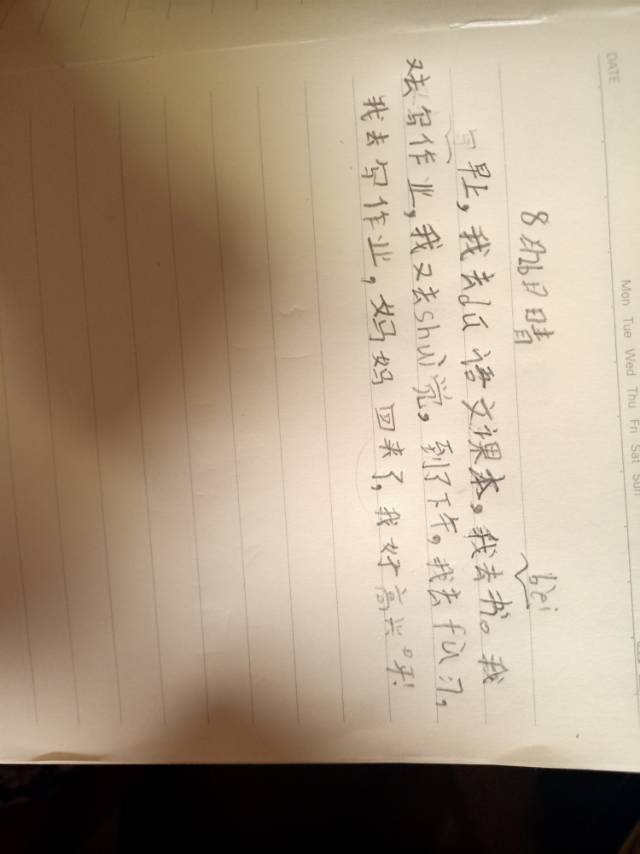 DATE
Mon Tue Wed Thu Fri Sat Sun
8月26日 晴
早上，我去dú语文课本。我去bèi书。我
又去写作业，我又去shuì觉，到了下午。我去fù习，
我去写作业，妈妈回来了，我好高兴呀！